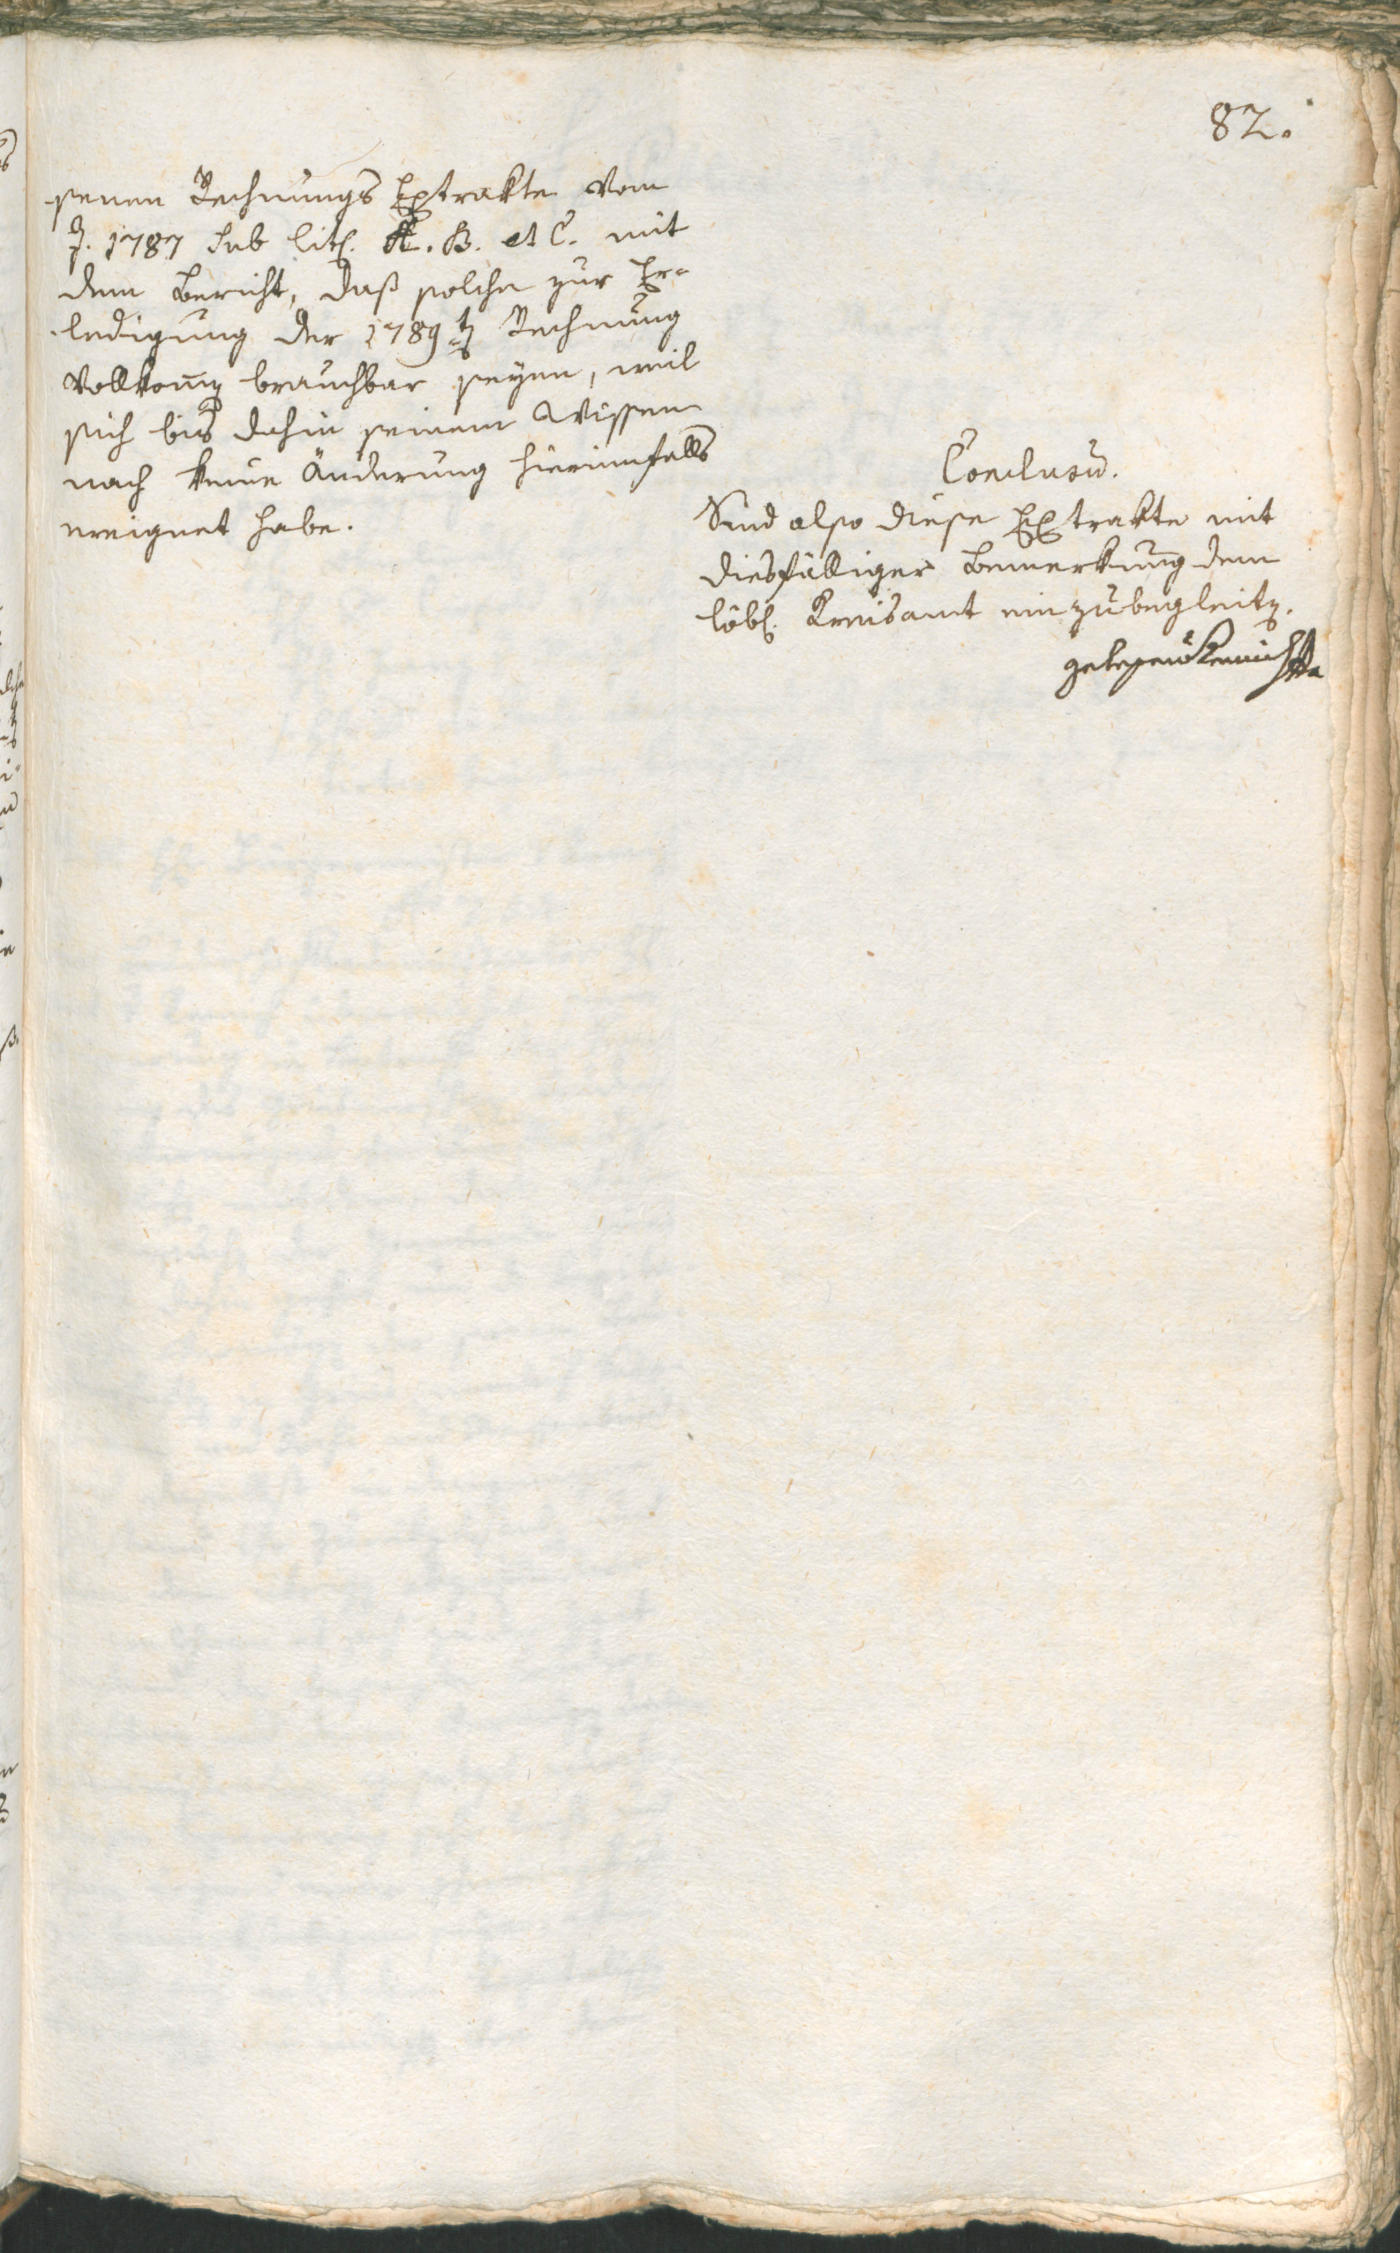 82.
senen Rechnungs Extrakte vom
J. 1787 sub lit. A. B. et C. mit
dem Bericht, daß solche zur Er-
ledigung der 1789 Rechnung
vollkom̄en brauchbar seyen, weil
sich bis dahin seinem Wissen
nach keine Änderung hierinnfalls
ereignet habe.
Conclusu.
Sind also diese Extrakte mit
diesfälliger Bemerkung dem
löbl. Kreisamt einzubegleiten.
gelesen